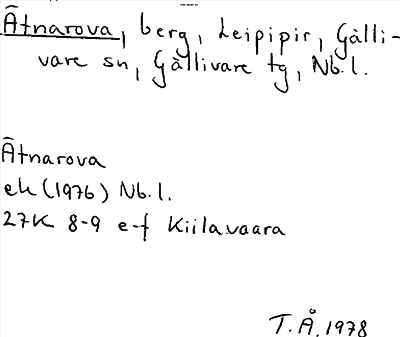 Ātnarova, berg, Leipipir, Gälli-
vare sn, Gällivare tg, Nb.l.
Ātnarova
ek (1976) Nb.l.
27K 8-9 e-f Kiilavaara
T.Å. 1978